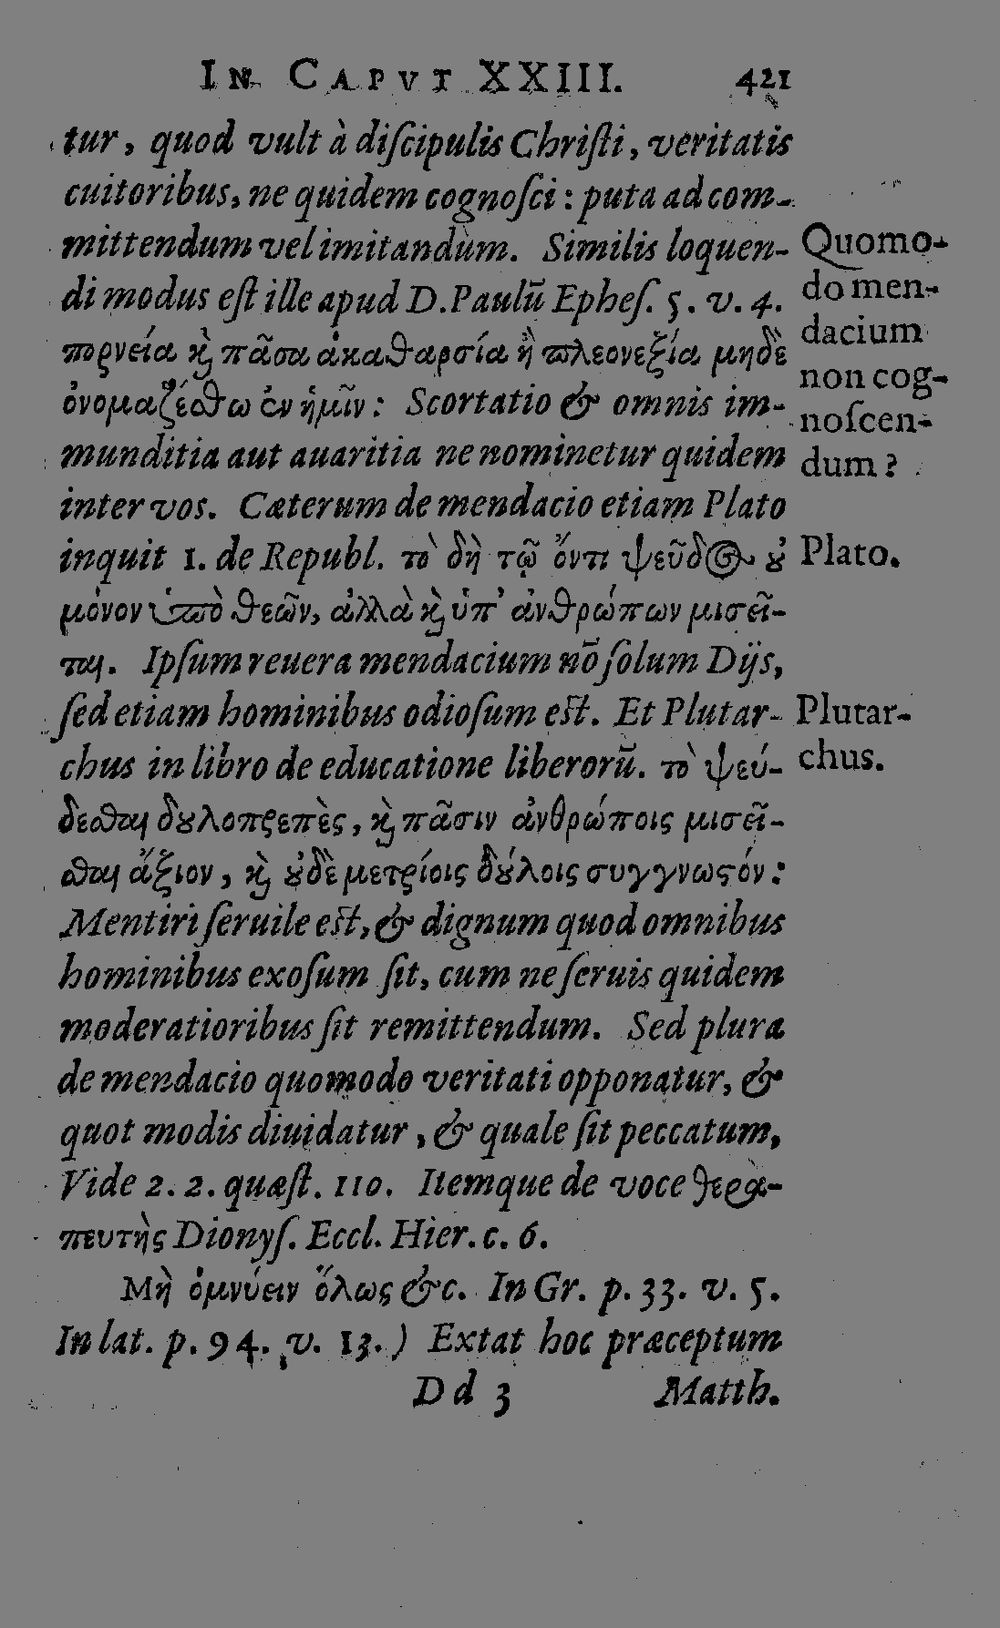 IN CAPVT XXIII. 421
tur, quod vult à diſcipulis Chriſti, veritatis
cuitoribus, ne quidem cognoſci: puta ad com-
mittendum vel imitandùm. Similis loquen-
di modus eſt ille apud D. Paulū Epheſ. 5. v. 4.
πορνεία ϗ̀ πᾶσα ἀκαθαρσία ἢ πλεονεξία μηδὲ
ὀνομαζέσθω ἐν ἡμῖν: Scortatio & omnis im-
munditia aut auaritia ne nominetur quidem
inter vos. Cæterum de mendacio etiam Plato
inquit 1. de Republ. τὸ δὴ τῷ ὄντι ψεῦδος ȣ̓
μόνον ὑπὸ θεῶν, ἀλλὰ ϗ̀ ὑπ' ἀνθρώπων μισεῖ-
ται. Ipſum reuera mendacium nō ſolum Dijs,
ſed etiam hominibus odioſum eſt. Et Plutar-
chus in libro de educatione liberorū. τὸ ψεύ-
δεσθαι δȣλοπρεπὲς, ϗ̀ πᾶσιν ἀνθρώποις μισεῖ-
σθαι ἄξιον, ϗ̀ ȣ̓δὲ μετρίοις δȣ́λοις συγγνωϛόν:
Mentiri ſeruile eſt, & dignum quod omnibus
hominibus exoſum ſit, cum ne ſeruis quidem
moderatioribus ſit remittendum. Sed plura
de mendacio quomodo veritati opponatur, &
quot modis diuidatur, & quale ſit peccatum,
Vide 2. 2. quæſt. 110. Itemque de voce θερα-
πευτὴς Dionyſ. Eccl. Hier. c. 6.
Μὴ ὀμνύειν ὅλως &c. In Gr. p. 33. v. 5.
In lat. p. 94. v. 13.) Extat hoc præceptum
Dd 3 Matth.
Quomo-
do men-
dacium
non cog-
noſcen-
dum?
Plato.
Plutar-
chus.